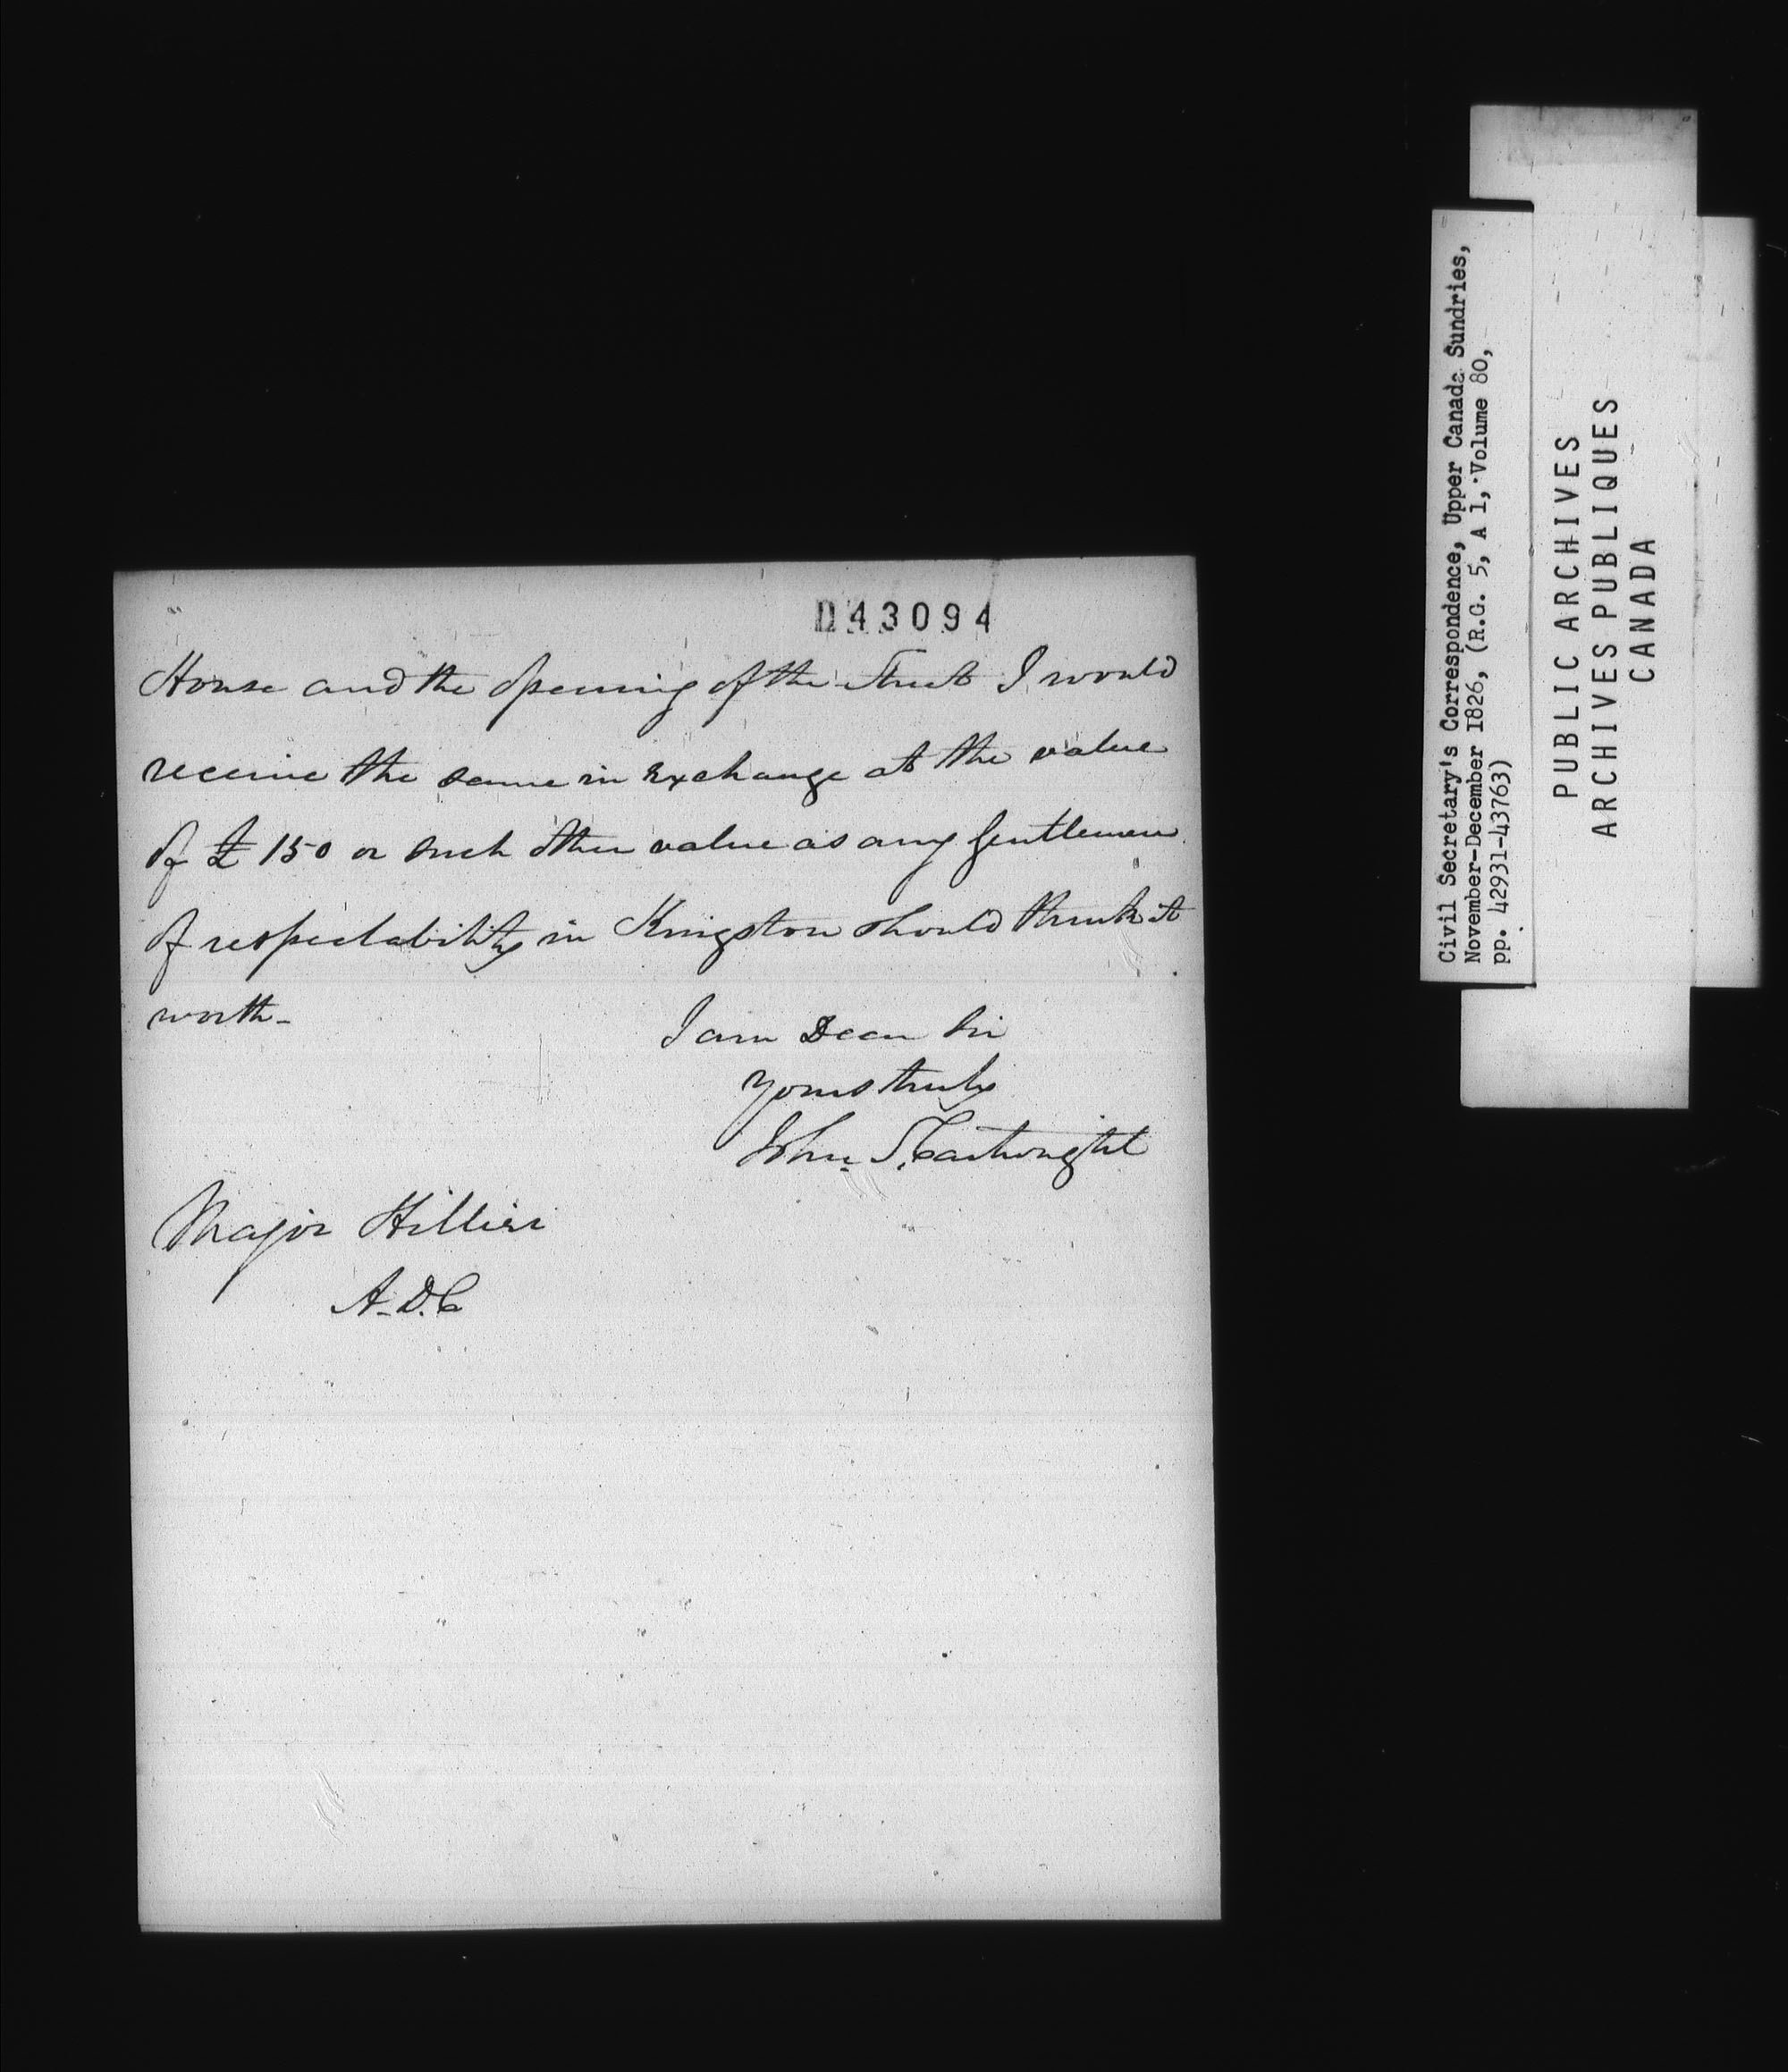 D43094
House and the opening of the Street I would
receive the same in Exchange at the value
of £150 or such other value as any Gentleman
of respectability in Kingston should think it
worth-
I am Dear Sir
Yours truly
John S. Cartwright
Major Hillier
A.D.C
Civil Secretary's Correspondence, Upper Canada Sundries,
November-December 1826, (R.G. 5, A 1, Volume 80,
pp. 42931-43763)
PUBLIC ARCHIVES
ARCHIVES PUBLIQUES
CANADA